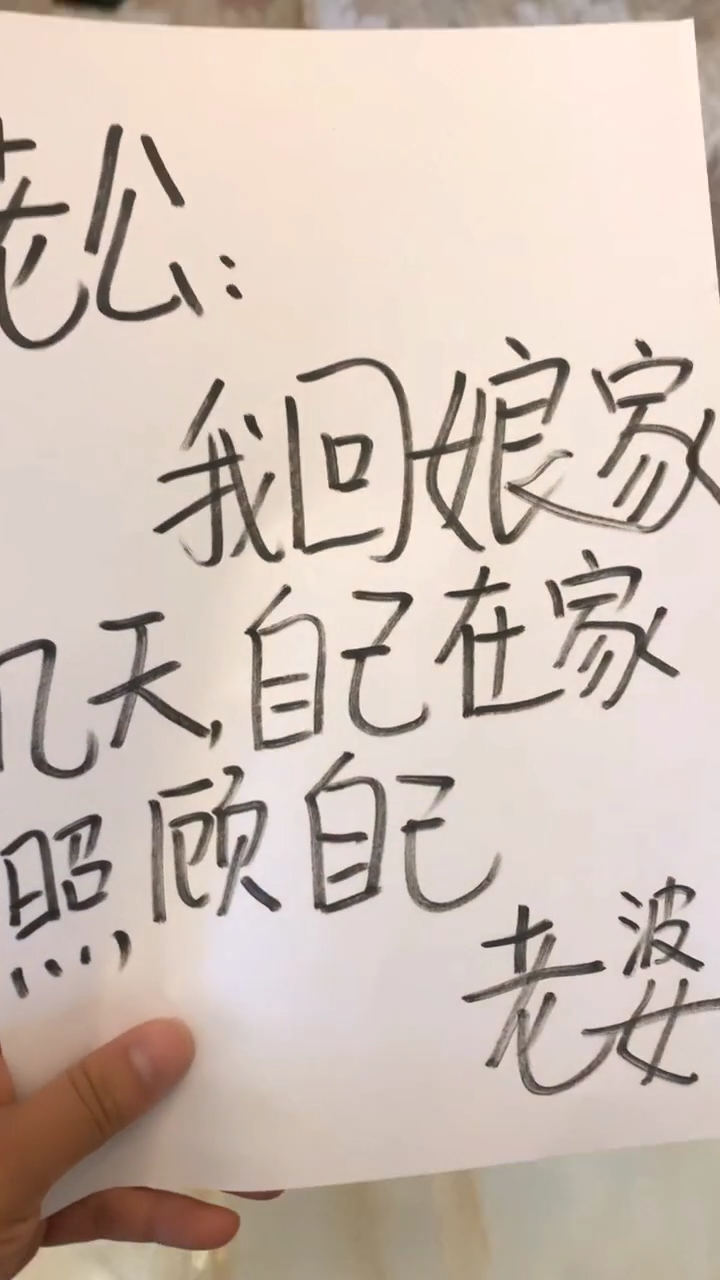 老公:
我回娘家
几天,自己在家
照顾自己
老婆